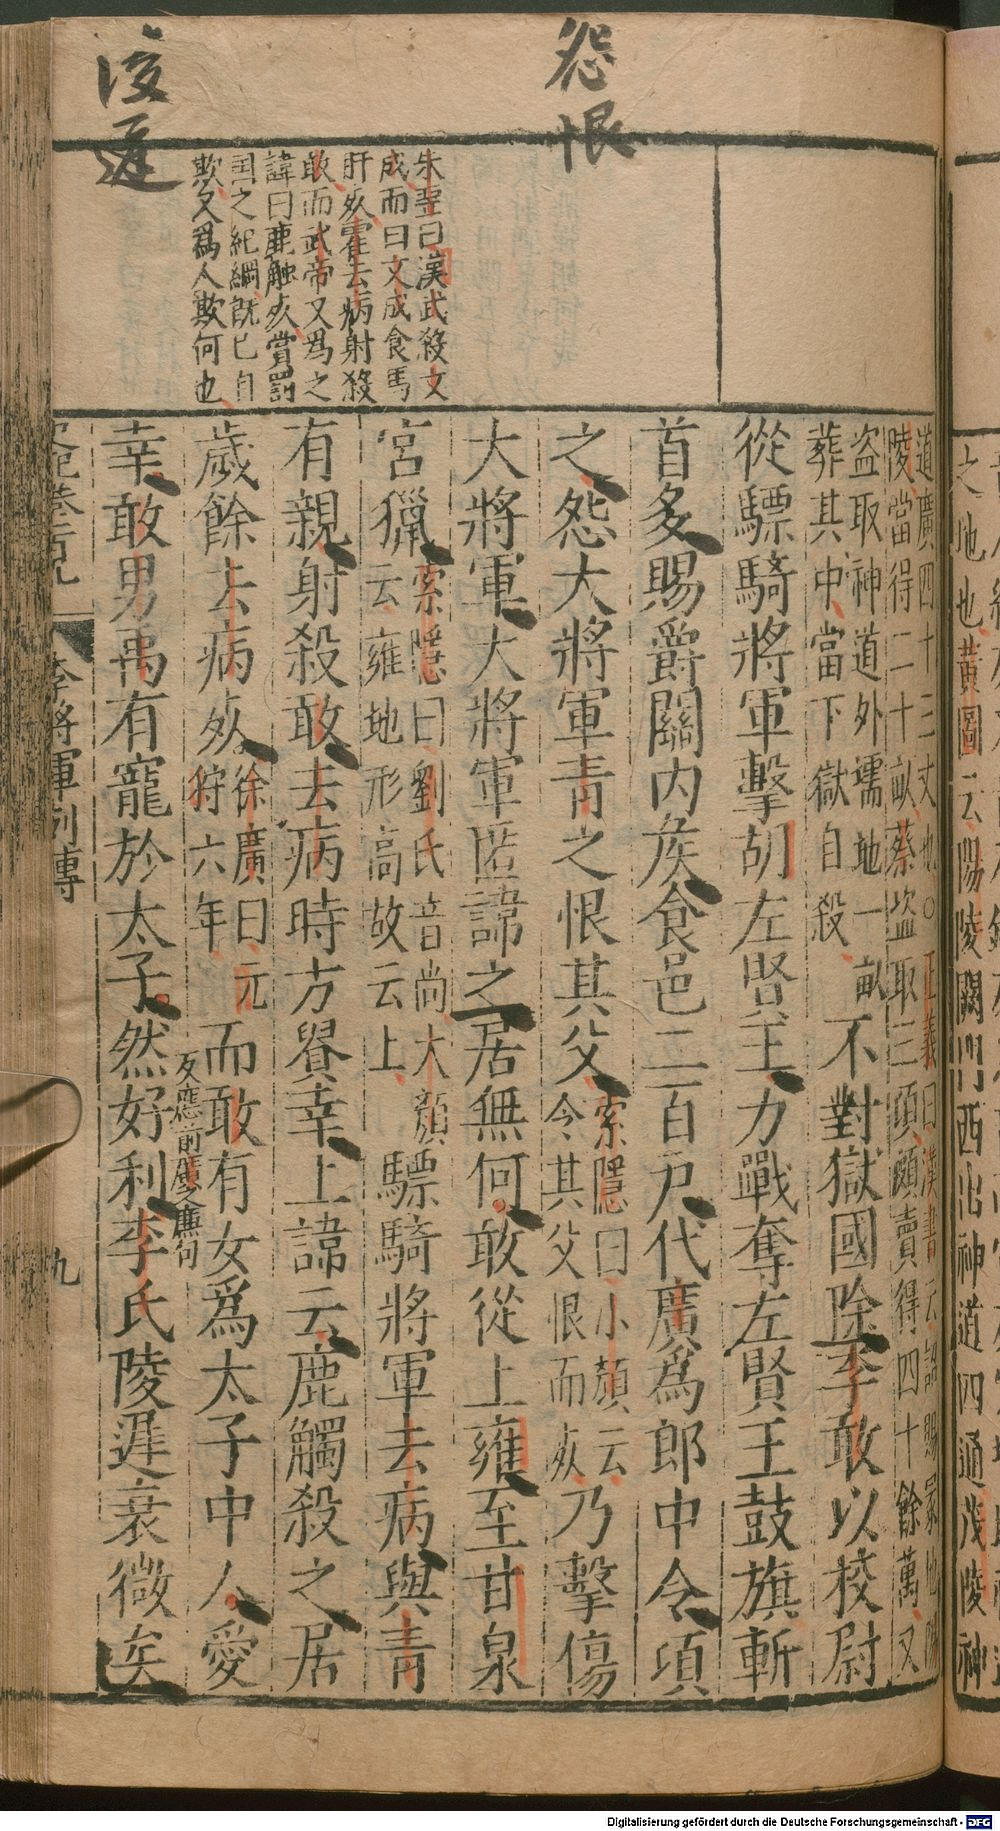 怨恨
朱翌曰漢武殺文
成而曰文成食馬
肝死霍去病射殺
敢而武帝又爲之
諱曰鹿触死賞罰
国之紀綱既已自
欺又爲人欺何也
道廣四十三丈也〇正義曰漢書云詔賜冢地陽
陵當得二十畝蔡盗取三頃頗賣得四十餘萬又
盗取神道外壖地一畝
葬其中當下獄自殺
不對獄國除李敢以校尉
從驃騎將軍擊胡左賢王力戰奪左賢王鼓旗斬
首多賜爵關内侯食邑二百戸代廣爲郎中令頃
之怨大將軍青之恨其父
索隱曰小顔云
今其父恨而死
乃擊傷
大將軍大將軍匿諱之居無何敢從上雍至甘泉
宮獵
索隱曰劉氏音尚大顔
云雍地形高故云上
驃騎將軍去病與青
有親射殺敢去病時方貴幸上諱云鹿觸殺之居
歲餘去病死
徐廣曰元
狩六年
而敢有女爲太子中人愛
幸敢男禹有寵於太子然好利李氏陵遲衰微矣
反應前廣之廉句
李將軍列傳
九
之地也黃圖云陽陵闕門西出神道四通茂陵神
Digitalisierung gefördert durch die Deutsche Forschungsgemeinschaft - DFG